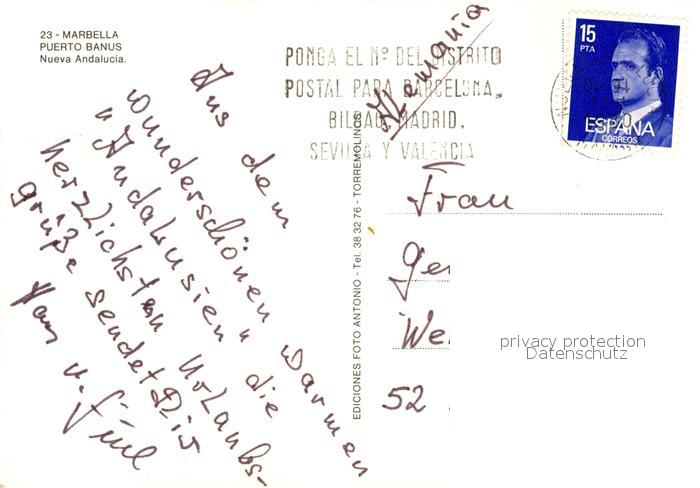 23 - MARBELLA
PUERTO BANUS
Nueva Andalucía.
Aus dem
wunderschönen warmen
"Andalusien" die
herzlichsten Urlaubs-
grüße sendet Dir
u.
EDICIONES FOTO ANTONIO - Tel. 38 32 76 - TORREMOLINOS
PONGA EL Nº DEL DISTRITO
POSTAL PARA BARCELONA,
BILBAO, MADRID,
SEVILLA Y VALENCIA
Alemania
15
PTA
ESPAÑA
CORREOS
Frau
Ge
We
52
privacy protection
Datenschutz